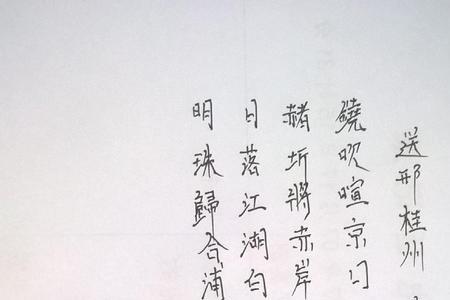 送邢桂州
鐃吹喧京口
赭圻將赤岸
日落江湖白
明珠歸合浦